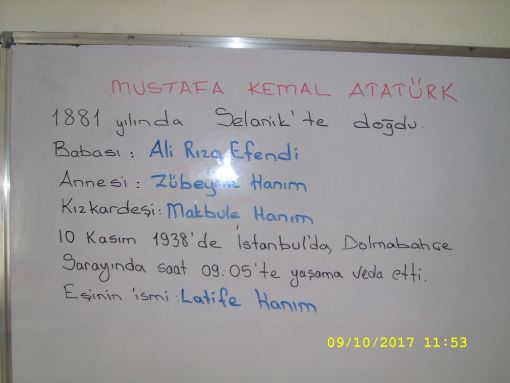 MUSTAFA KEMAL ATATÜRK
1881 yılında Selanik'te doğdu.
Babası: Ali Rıza Efendi
Annesi: Zübeyde Hanım
Kızkardeşi: Makbule Hanım
10 Kasım 1938'de İstanbul'da, Dolmabahçe
Sarayında saat 09:05'te yaşama veda etti.
Eşinin ismi: Latife Hanım
09/10/2017 11:53